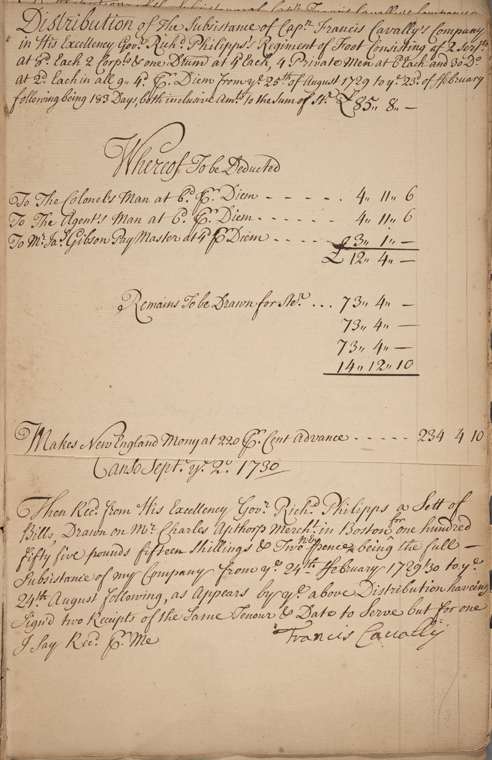 Distribution of the Subsistance of Capn. Francis Cavally's Company
in His Excellency Govr. Richd. Philipps's Regiment of Foot Consisting of 2 Serjts
at 8d. Each 2 Corpls. & one Drum at 4d. Each, 4 Private Men at 6d. Each and 30 Do.
at 2d. Each in all 9.. 4d. P. Diem from ye. 25th of August 1729 to ye. 23d. of February
following being 183 Days, both inclusive Amts. to the Sum of Str. £85.. 8.. —
Whereof To be Deducted
To The Colonel's Man at 6d. P. Diem - - - - - . 4.. 11.. 6
To The Agent's Man at 6d. P. Diem - - - - - - 4.. 11.. 6
To Mr. Jas. Gibson Pay Master at 4d P Diem - - - - 03.. 1.. —
£ 12.. 4.. —
Remains To be Drawn for Ster. ... 73.. 4.. —
73.. 4.. —
73.. 4.. —
14.. 12.. 10
Makes New England Mony at 220 P. Cent Advance - - - - - 234 4 10
Canso Septr. ye. 2d. 1730
Then Recd. from His Excellency Govr. Richd. Philipps a Sett of
Bills, Drawn on Mr. Charles Apthorp Mercht. in Boston for one hundred
fifty five pounds fifteen Shillings & Two pence being the full —
Subsistance of my Company from ye. 24th February 1729/30 to ye.
24th August following, as Appears by ye. above Distribution haveing
Sign'd two Recipts of the Same Tenour & Date to Serve but for one
I Say Recd. P. Me Francis Cavally